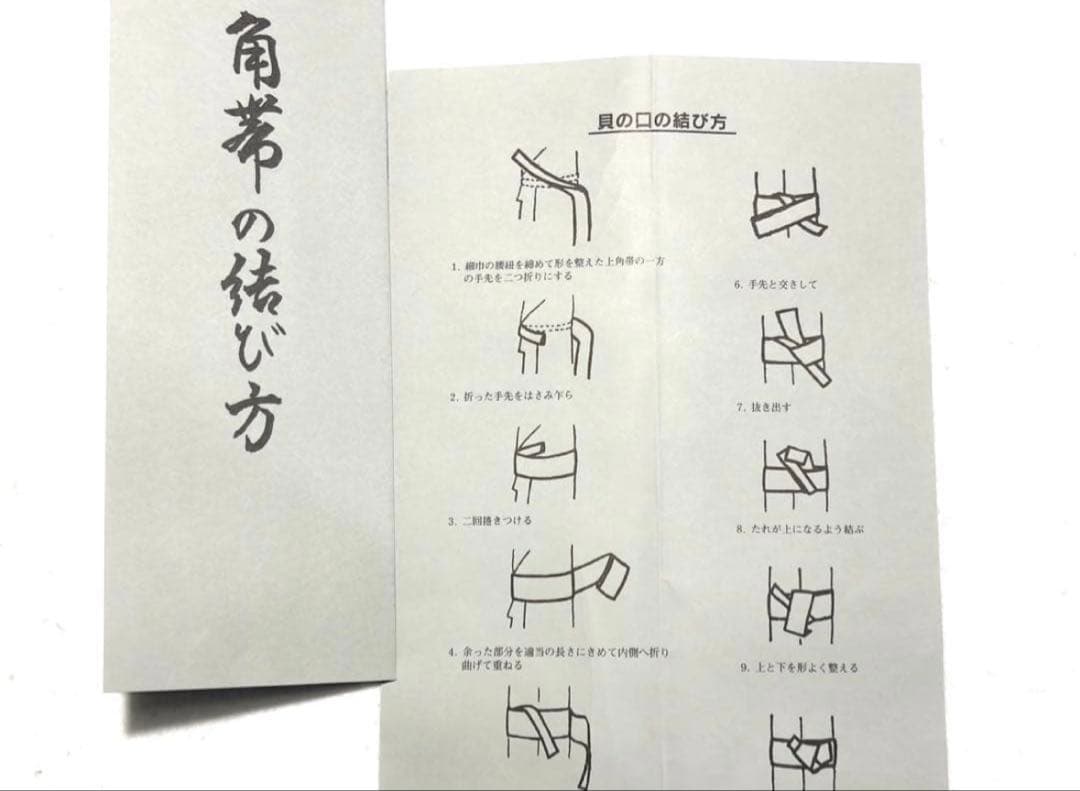 角帯の結び方
貝の口の結び方
1. 細巾の腰紐を締めて形を整えた上角帯の一方
の手先を二つ折りにする
2. 折った手先をはさみ乍ら
3. 二回捲きつける
4. 余った部分を適当の長さにきめて内側へ折り
曲げて重ねる
6. 手先と交きして
7. 抜き出す
8. たれが上になるよう結ぶ
9. 上と下を形よく整える